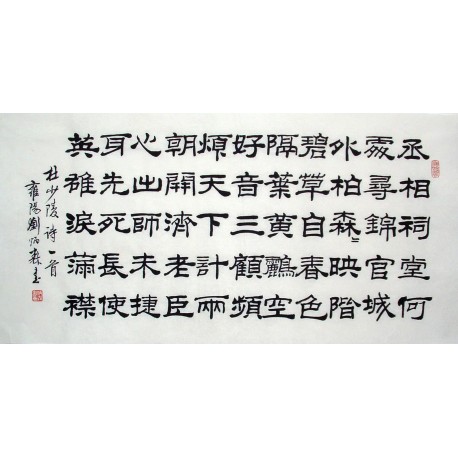 丞相祠堂何
處尋錦官城
外柏森〻映階
碧草自春色
隔葉黃鸝空
好音三顧頻
煩天下計兩
朝開濟老臣
心出師未捷
身先死長使
英雄淚滿襟
杜少陵诗一首
雍陽劉炳森書